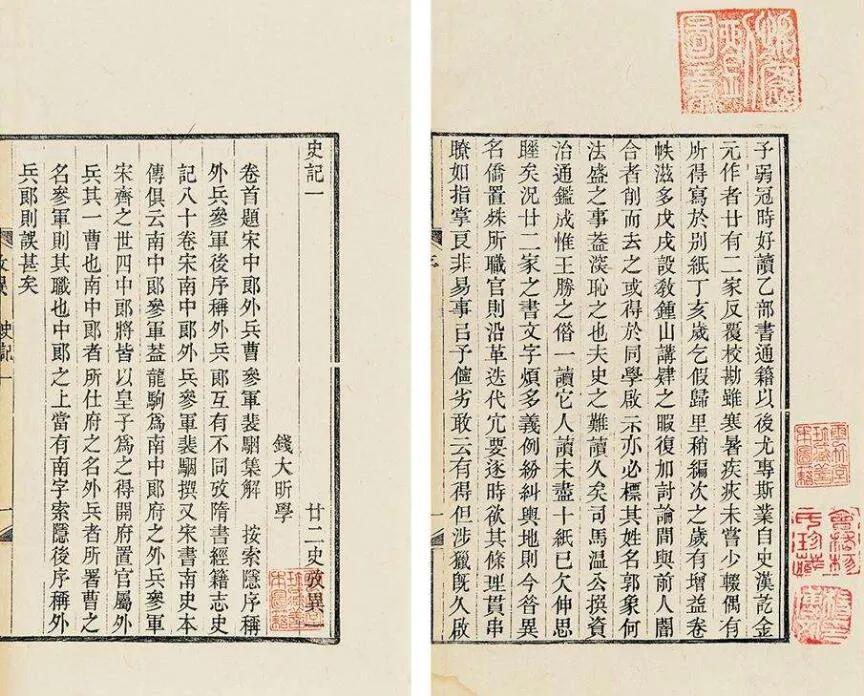 予弱冠時好讀乙部書通籍以後尤專斯業自史漢訖金
元作者廿有二家反覆校勘雖寒暑疾疢未嘗少輟偶有
所得寫於別紙丁亥歲乞假歸里稍編次之歲有增益卷
帙滋多戊戌設敎鍾山講肄之暇復加討論間與前人闇
合者削而去之或得於同學啟示亦必標其姓名郭象何
法盛之事葢深恥之也夫史之難讀久矣司馬温公撰資
治通鑑成惟王勝之借一讀它人讀未盡十紙已欠伸思
睡矣況廿二家之書文字煩多義例紛糾輿地則今昔異
名僑置殊所職官則沿革迭代冗要逐時欲其條理貫串
瞭如指掌良非易事㠯予儜劣敢云有得但涉獵旣久啟
序
史記一 廿二史攷異一
錢大昕學
卷首題宋中郞外兵曹參軍裴駰集解 按索隱序稱
外兵參軍後序稱外兵郞互有不同攷隋書經籍志史
記八十卷宋南中郞外兵參軍裴駰撰又宋書南史本
傳俱云南中郞參軍葢龍駒爲南中郞府之外兵參軍
宋齊之世四中郞將皆以皇子爲之得開府置官屬外
兵其一曹也南中郞者所仕府之名外兵者所署曹之
名參軍則其職也中郞之上當有南字索隱後序稱外
兵郞則誤甚矣
攷異 史記一